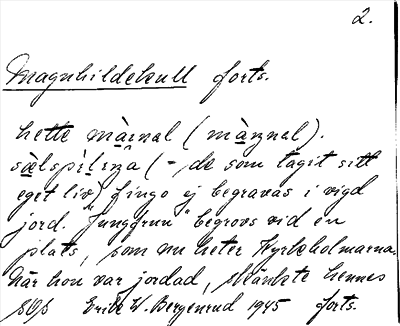 2.
Magnhildekull forts.
hette màinal (màŋnal).
sǜlspìliŋa (-, de som tagit sitt
eget liv) fingo ej begravas i vigd
jord. "Jungfrun" begrovs vid en
plats, som nu heter Kyrkholmarna.
När hon var jordad, stänkte hennes
Erik W. Bergenrud 1945 forts.